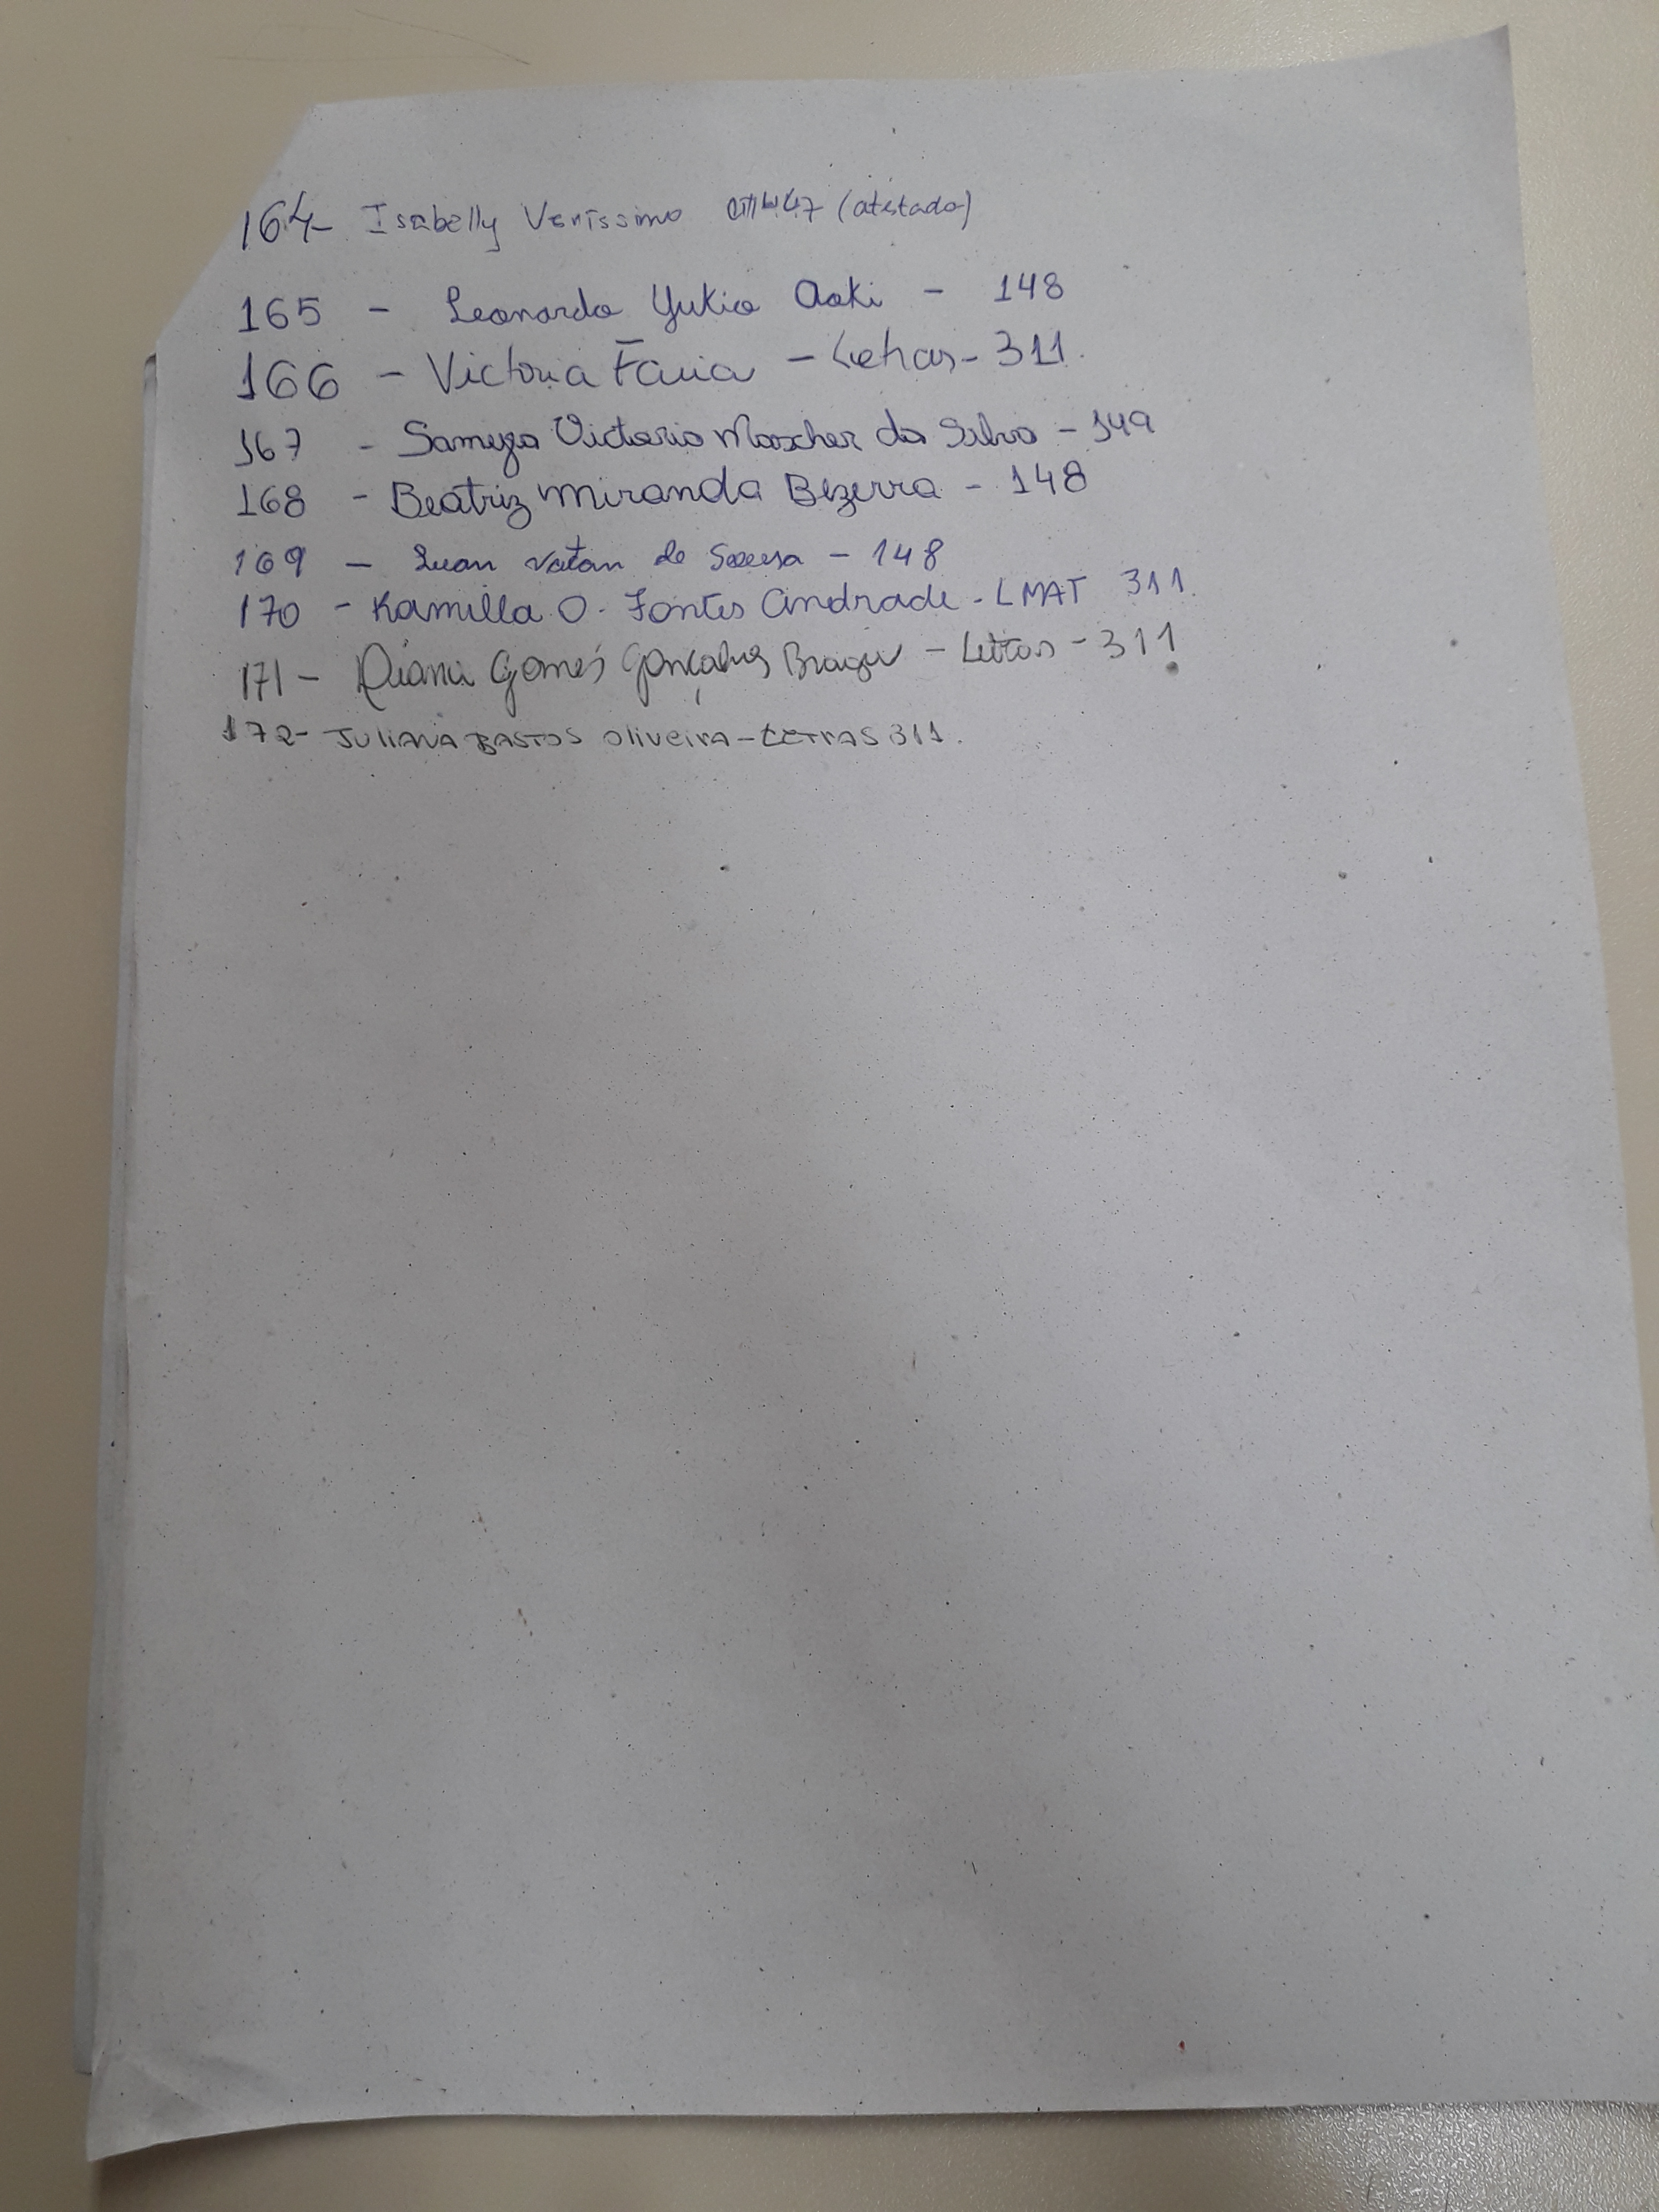 164- Isabelly Veríssimo 447 (atestado)
165 - Leonardo Yukio Aoki - 148
166 - Victoria Faria - Letras - 311.
167 - Victoria da Silva - 149
168 - Beatriz Miranda Bezerra - 148
169 - Luan Natan de Sousa - 148
170 - Kamilla O. Fontes Andrade - LMAT 311.
171 - Diana Gomes Gonçalves Braga - Letras - 311
172 - JULIANA BASTOS Oliveira - LETRAS 311.